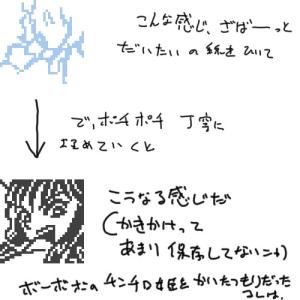 こんな感じ、ざばーっと
だいたいの線をひいて
で、ポチポチ 丁寧に
埋めていくと
こうなる感じだ
(かきかけって
あまり保存してないニャ)
ボーボボの
をかいたつもりだった